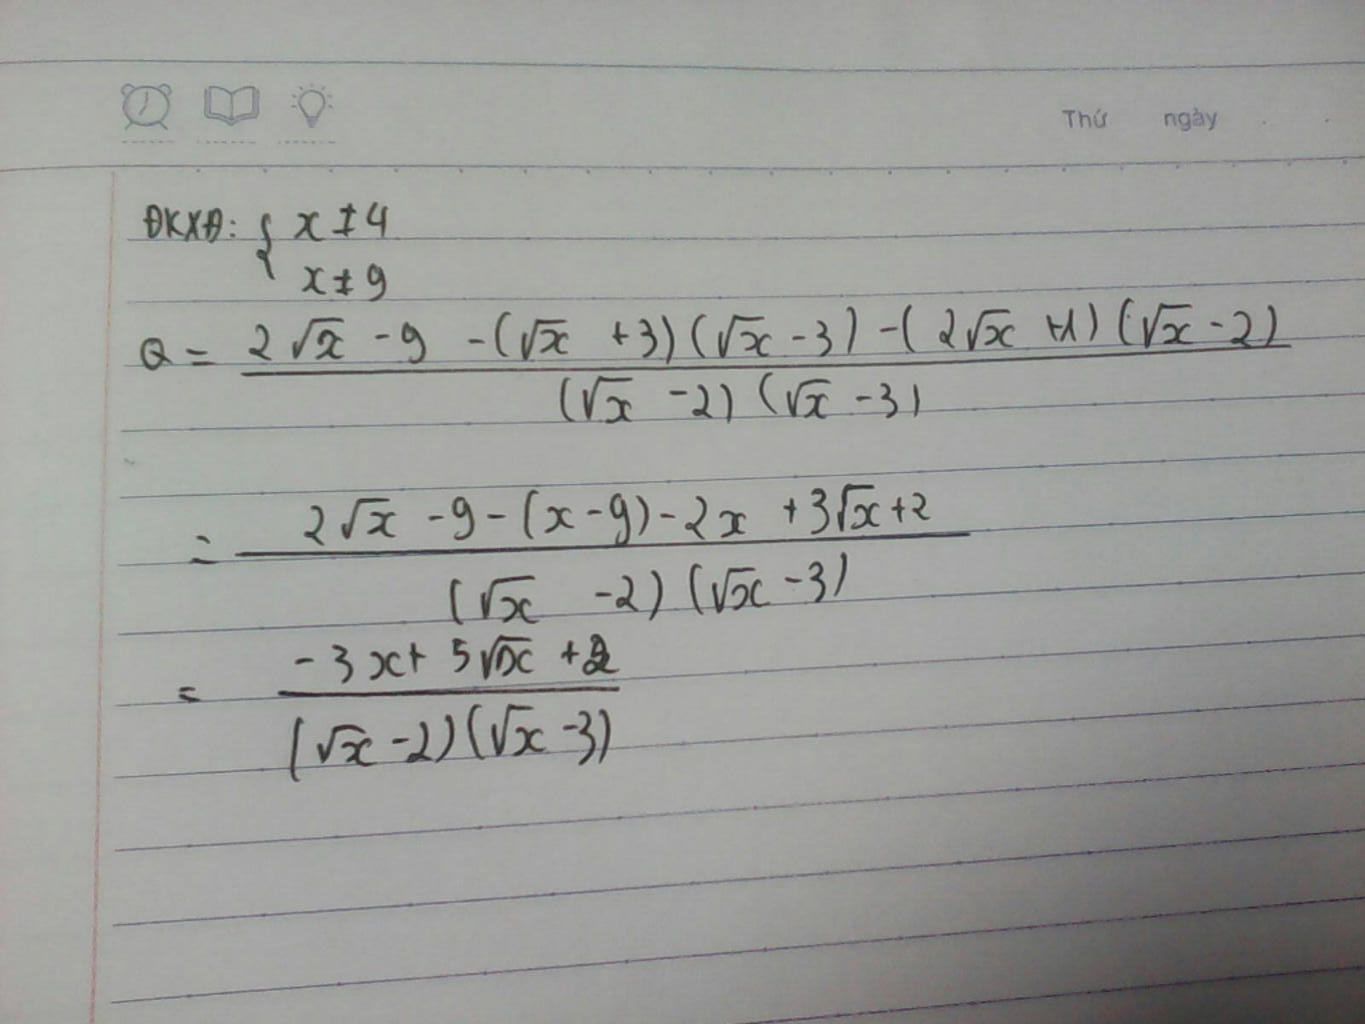 Thứ ngày
ĐKXĐ: { x ≠ 4
x ≠ 9
Q = (2√x - 9 - (√x + 3)(√x - 3) - (2√x + 1)(√x - 2)) / ((√x - 2)(√x - 3))
= (2√x - 9 - (x - 9) - 2x + 3√x + 2) / ((√x - 2)(√x - 3))
= (-3x + 5√x + 2) / ((√x - 2)(√x - 3))